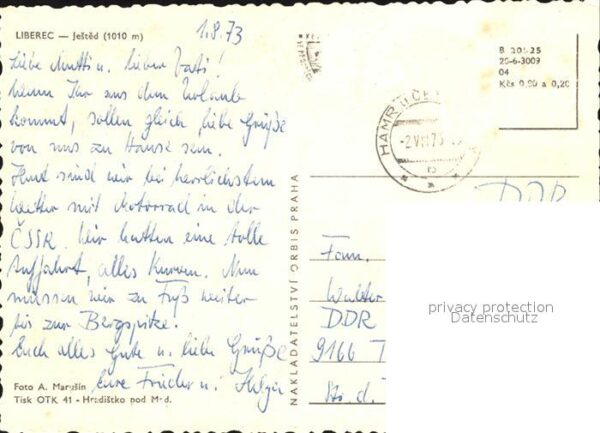 LIBEREC — Ještěd (1010 m)
1.8.73
Liebe Mutti u. lieber Vati!
Wenn Ihr aus dem Urlaub
kommt, sollen gleich liebe Grüße
von uns zu Hause sein.
Heut sind wir bei herrlichstem
Wetter mit Motorrad in der
ČSSR. Wir hatten eine tolle
Auffahrt, alles Kurven. Nun
müssen wir zu Fuß weiter
bis zur Bergspitze.
Euch alles Gute u. liebe Grüße
Eure Frieder u. Helga
Foto A. Marušin
Tisk OTK 41 - Hradištko pod Med.
NAKLADATELSTVÍ ORBIS PRAHA
B 20
25-6-3009
04
Kčs 0,90 a 0,20
HAMR
DDR
Fam.
Walter
DDR
9166 T
privacy protection
Datenschutz